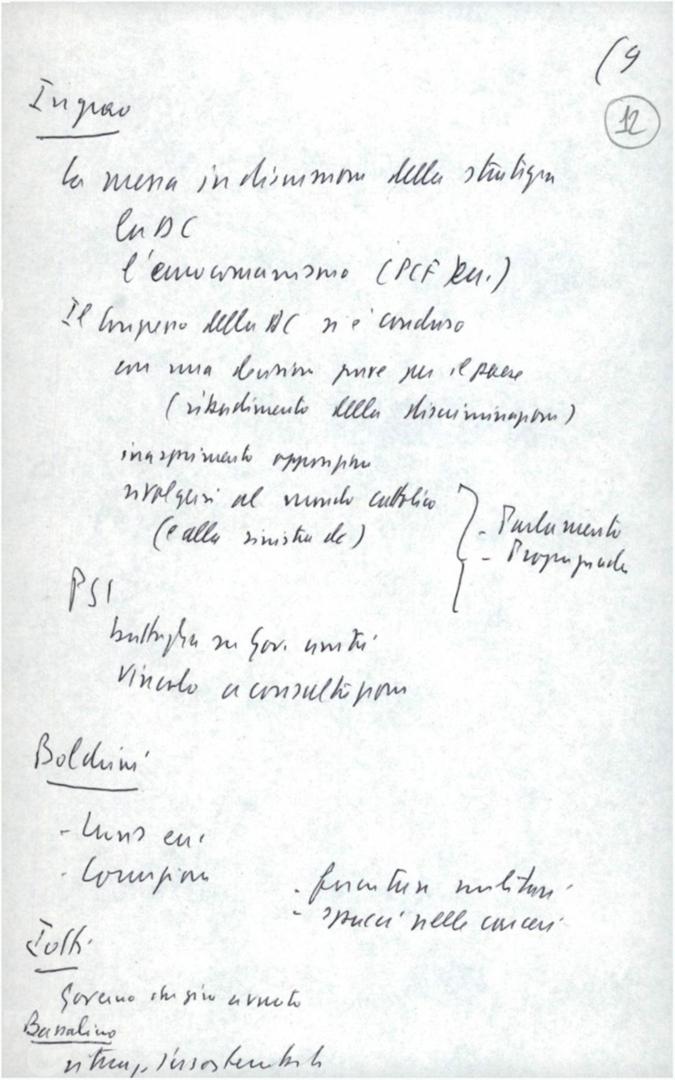 (9
12
Ingrao
la messa in discussione della strategia
la DC
l'eurocomunismo (PCF
Il Congresso della DC si è concluso
con una decisione grave per il paese
(ribadimento della discriminazione)
inasprimento opposizione
rivolgersi al mondo cattolico
(e alla sinistra dc)
- Parlamento
- Propaganda
PSI
battaglia su Gov. unità
vincolo a consultazioni
Boldrini
-
- Corruzione
- forniture militari
- spacci nelle carceri
Iotti
Governo
Bassolino
insostenibile